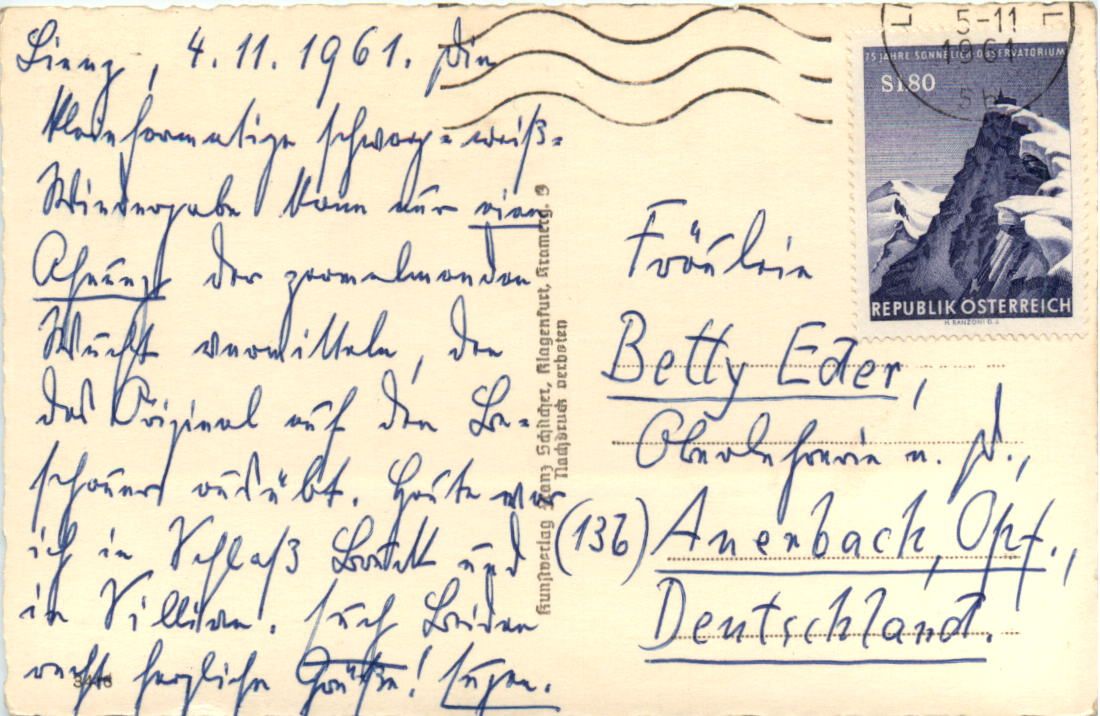 Lienz, 4.11.1961. Die
kleinformatige schwarz-weiß-
Wiedergabe kann nur eine
Ahnung der zermalmenden
Wucht vermitteln, den
das Original auf den Be-
schauer ausübt. Heute war
ich in Schloß Bruck und
in Sillian. Euch Beiden
recht herzliche Grüße! Eugen.
3416
Kunstverlag Franz Schilcher, Klagenfurt, Kramerg. 9
Nachdruck verboten
5-11
1961
75 JAHRE SONNBLICK OBSERVATORIUM
S1.80
REPUBLIK ÖSTERREICH
H. RANZONI D. J.
Fräulein
Betty Eder,
Oberlehrerin a. D.,
(13b) Auerbach, Opf.,
Deutschland.